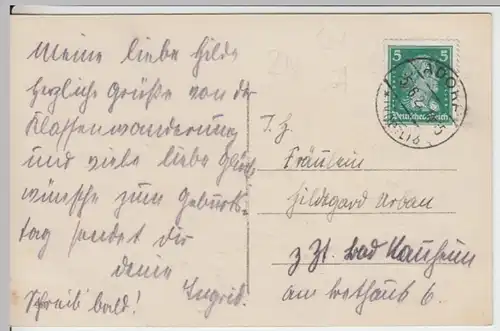 Meine liebe Hilde
herzliche Grüße von der
Klassenwanderung
und viele liebe Glück-
wünsche zum Geburts-
tag sendet dir
deine
Ingrid.
Schreib bald!
5 5
Deutsches Reich
T. H.
Fräulein
Hildgard Urban
z. Zt. Bad Nauheim
am 6.